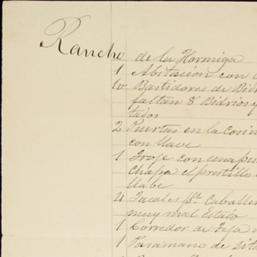 Rancho de la Hormiga
1 Abitacion con
10 Bastidores de Bid
faltan 8 Bidrios y
tados
2 Puertas en la
con llave
1 Troje con una pue
chapa el postillo
llabe
4 Jacales pa. Caball
muy mal Estado
1 Corredor de Teja
1 Pasamano de